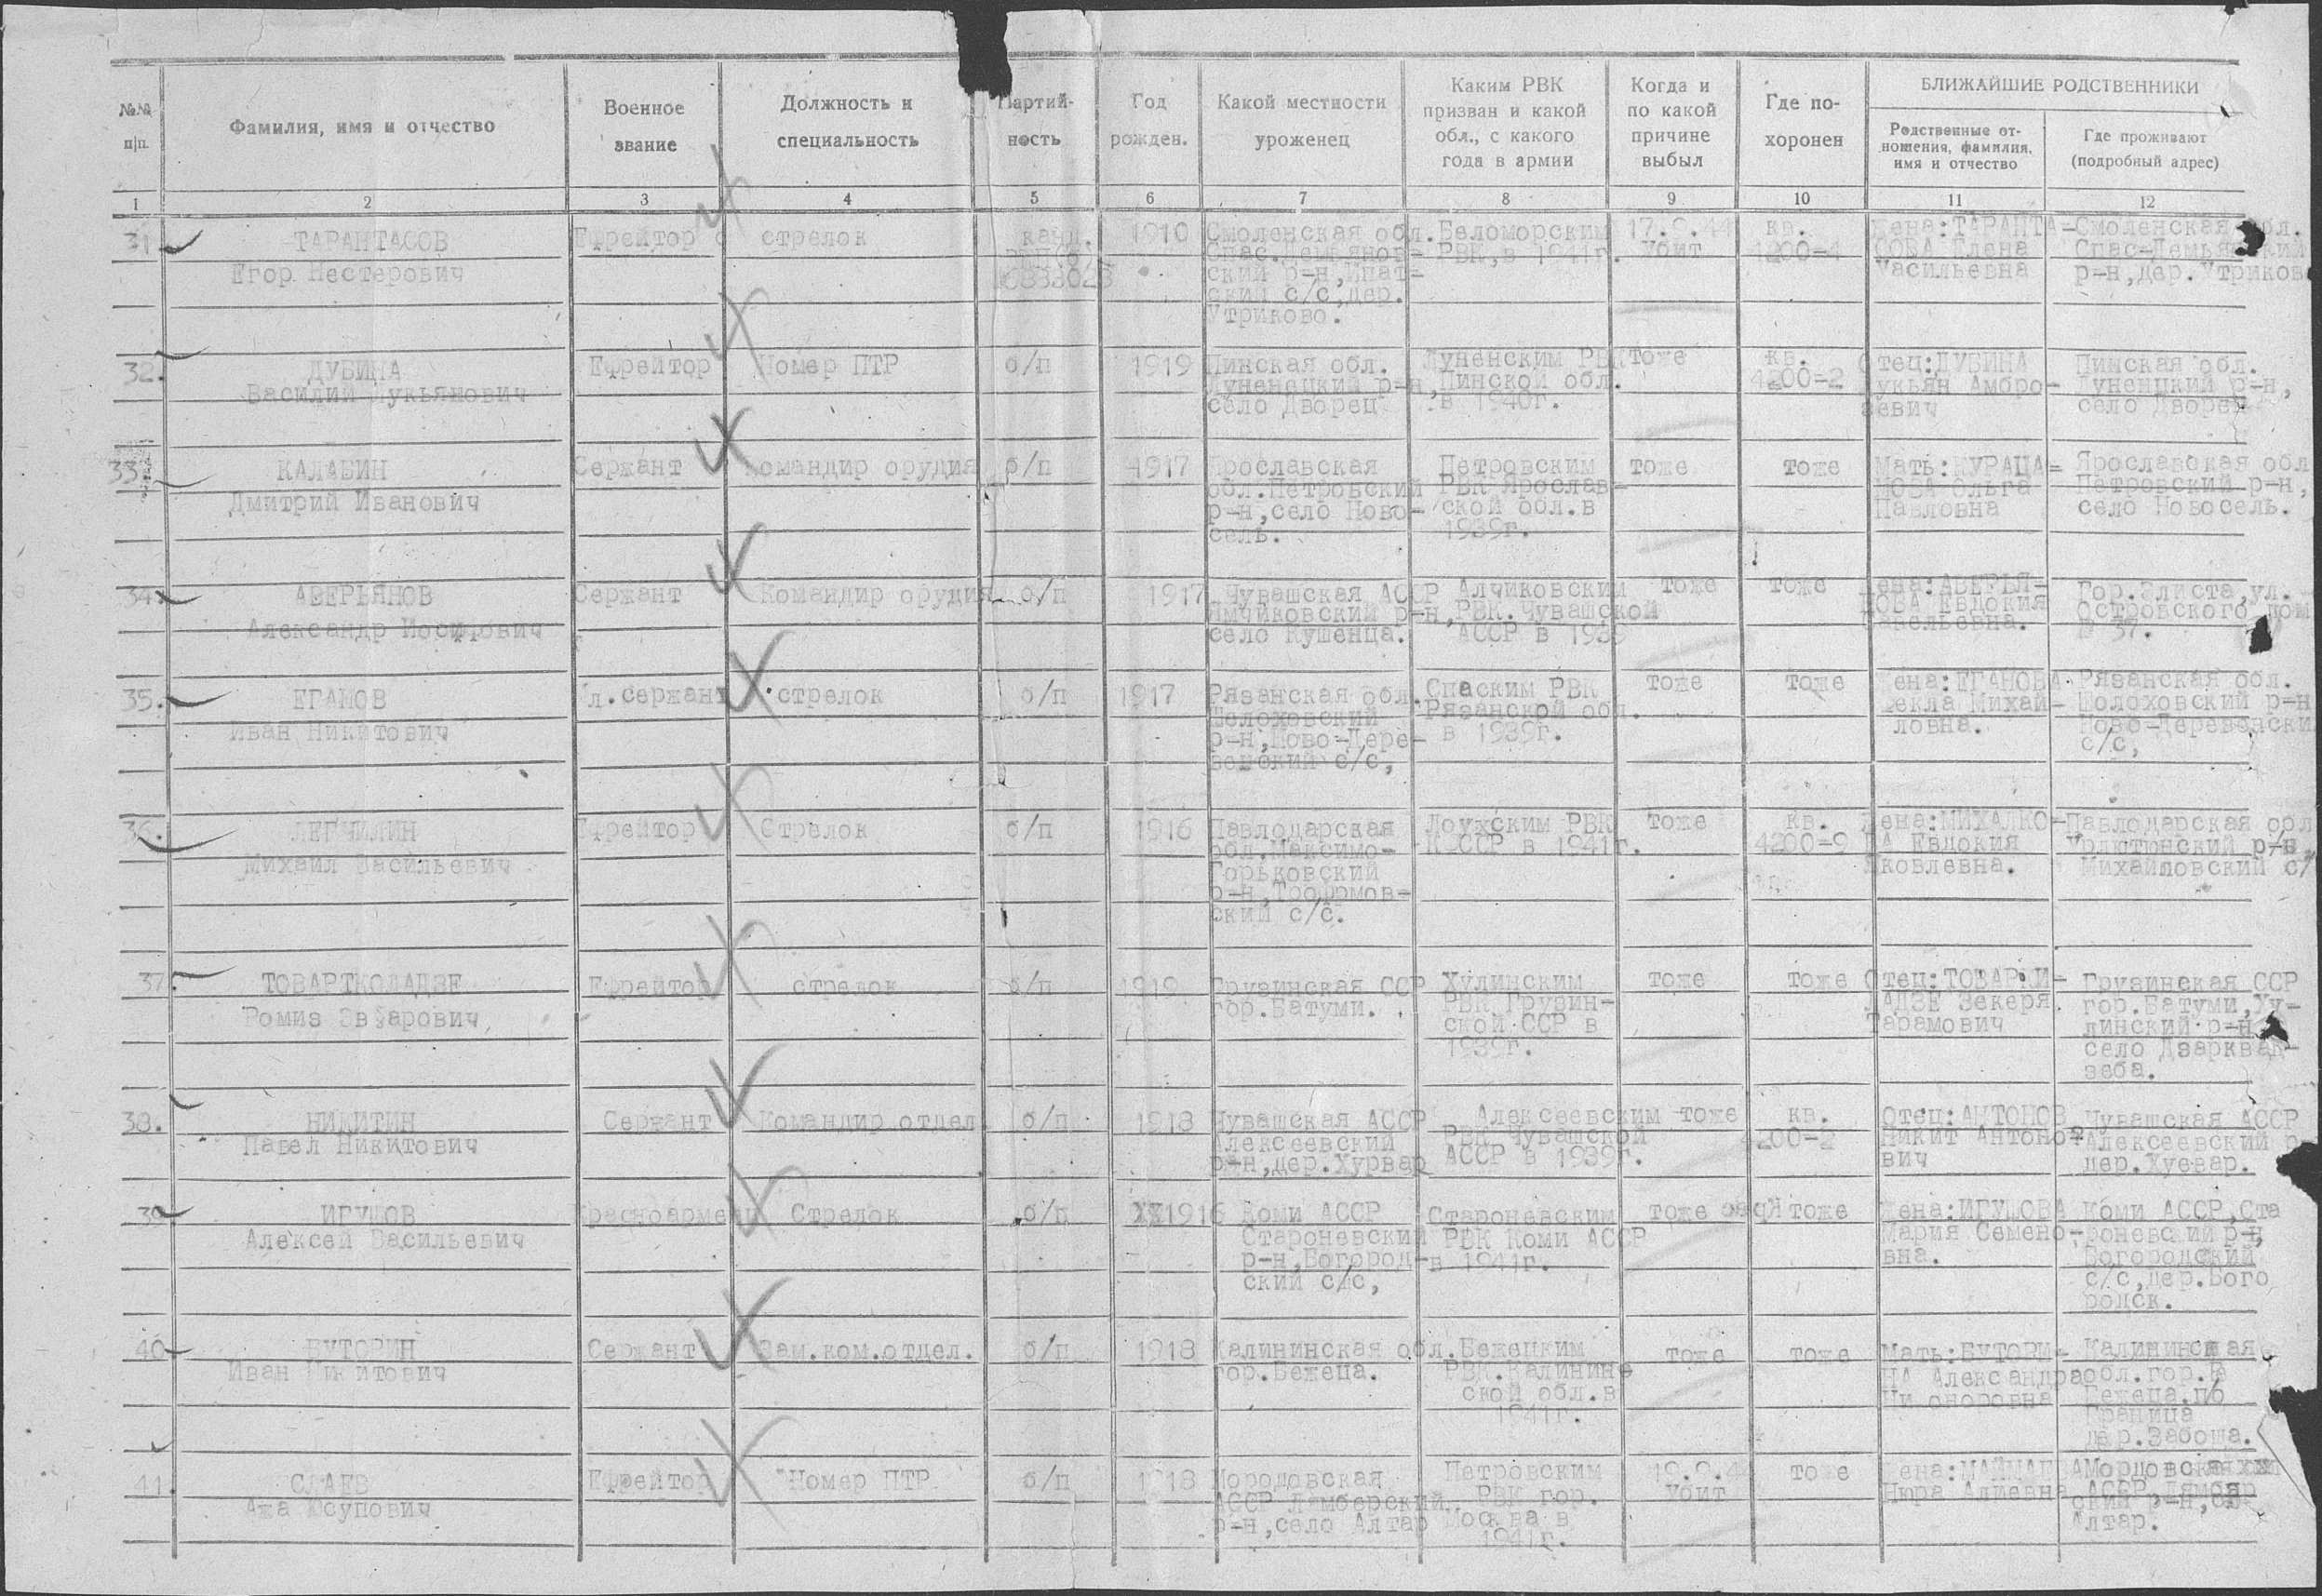 №№ п|п.
Фамилия, имя и отчество
Военное звание
Должность и специальность
Партий- ность
Год рожден.
Какой местности уроженец
Каким РВК призван и какой обл., с какого года в армии
Когда и по какой причине выбыл
Где по- хоронен
БЛИЖАЙШИЕ РОДСТВЕННИКИ
Родственные от- ношения, фамилия, имя и отчество
Где проживают (подробный адрес)
1 2 3 4 5 6 7 8 9 10 11 12
31. ТАРАНТАСОВ Ефрейтор стрелок канд. 1910 Смоленская обл. Беломорским 17.9.44 кв. Жена:ТАРАНТА- Смоленская обл.
Егор Нестерович Спас.Демьянов- РВК,в 1941г. Убит 4200-4 СОВА Елена Спас-Демьянский
ский р-н,Ипат- Васильевна р-н,дер.Утриков
ский с/с,дер.
Утриково.
32. ДУБИНА Ефрейтор Номер ПТР б/п 1919 Пинская обл. Луненским РВК тоже кв. Отец:ДУБИНА Пинская обл.
Василий Лукьянович Луненецкий р-н, Пинской обл. 4200-2 Лукьян Амбро- Луненцкий р-н,
село Дворец в 1940г. зевич село Дворец
33. КАЛАБИН Сержант Командир орудия б/п 1917 Ярославская Петровским тоже тоже Мать:КУРАЦА- Ярославская обл
Дмитрий Иванович обл.Петровский РВК Ярослав- НОВА Ольга Петровский р-н,
р-н,село Ново- ской обл.в Павловна село Новосель.
сель. 1939г.
34. АВЕРЬЯНОВ Сержант Командир орудия б/п 1917 Чувашская АССР Алчиковским тоже тоже Жена:АВЕРЬЯ- Гор.Элиста,ул.
Александр Иосифович Ямчиковский р-н, РВК.Чувашской НОВА Евдокия Островского дом
село Кушенца. АССР в 1939 Савельевна. № 37.
35. ЕГАНОВ Мл.сержант стрелок б/п 1917 Рязанская обл. Спаским РВК тоже тоже Жена:ЕГАНОВА Рязанская обл.
Иван Никитович Шолоховский Рязанской обл. Фекла Михай- Шолоховский р-н
р-н,Ново-Дере- в 1939г. ловна. Ново-Деревенски
венский с/с, с/с,
36. ЛЕГЧИЛИН Ефрейтор Стрелок б/п 1916 Павлодарская Лоухским РВК тоже кв. Жена:МИХАЛКО- Павлодарская обл
Михаил Васильевич обл.Максимо- КФССР в 1941г. 4200-9 ВА Евдокия Урлютюнский р-н
Горьковский Яковлевна. Михайловский с/
р-н,Трофимов-
ский с/с.
37. ТОВАРТКОЛАДЗЕ Ефрейтор стрелок б/п 1919 Грузинская ССР Хулинским тоже тоже Отец: Грузинская ССР
Ромиз гор.Батуми. РВК Грузин- ЛАДЗЕ Зекеря гор.Батуми,Ху-
ской ССР в Тарамович линский р-н
1939г. село
зеба.
38. НИКИТИН Сержант Командир отдел б/п 1918 Чувашская АССР Алексеевским тоже кв. Отец:АНТОНОВ Чувашская АССР
Павел Никитович Алексеевский РВК Чувашской 4200-2 Никит Антоно- Алексеевский р
р-н,дер.Хурвар АССР в 1939г. вич дер.Хуевар.
39. ИГУШОВ Красноармеец Стрелок б/п 1916 Коми АССР Староневским тоже тоже Жена:ИГУШОВА Коми АССР,Ста
Алексей Васильевич Староневский РВК Коми АССР Мария Семено- роневский р-н,
р-н,Богород- в 1941г. вна. Богородский
ский с/с, с/с,дер.Бого
родск.
40 БУТОРИН Сержант Зам.ком.отдел. б/п 1918 Калининская обл. Бежецким тоже тоже Мать:БУТОРИ- Калининская
Иван Никитович гор.Бежеца. РВК.Калинин- НА Александра обл.гор.
ской обл.в Бежеца.п/о
1941г. Граница
дер.Забоша.
41. СЛАЕВ Ефрейтор Номер ПТР б/п 1918 Мородовская Петровским 19.9.44 тоже Жена: Мордовская
Ажа Юсупович АССР Лямберский РВК гор. Убит Нюра Алиевна АССР
р-н,село Алтар Москва в ский р-н,
1941г. Алтар.